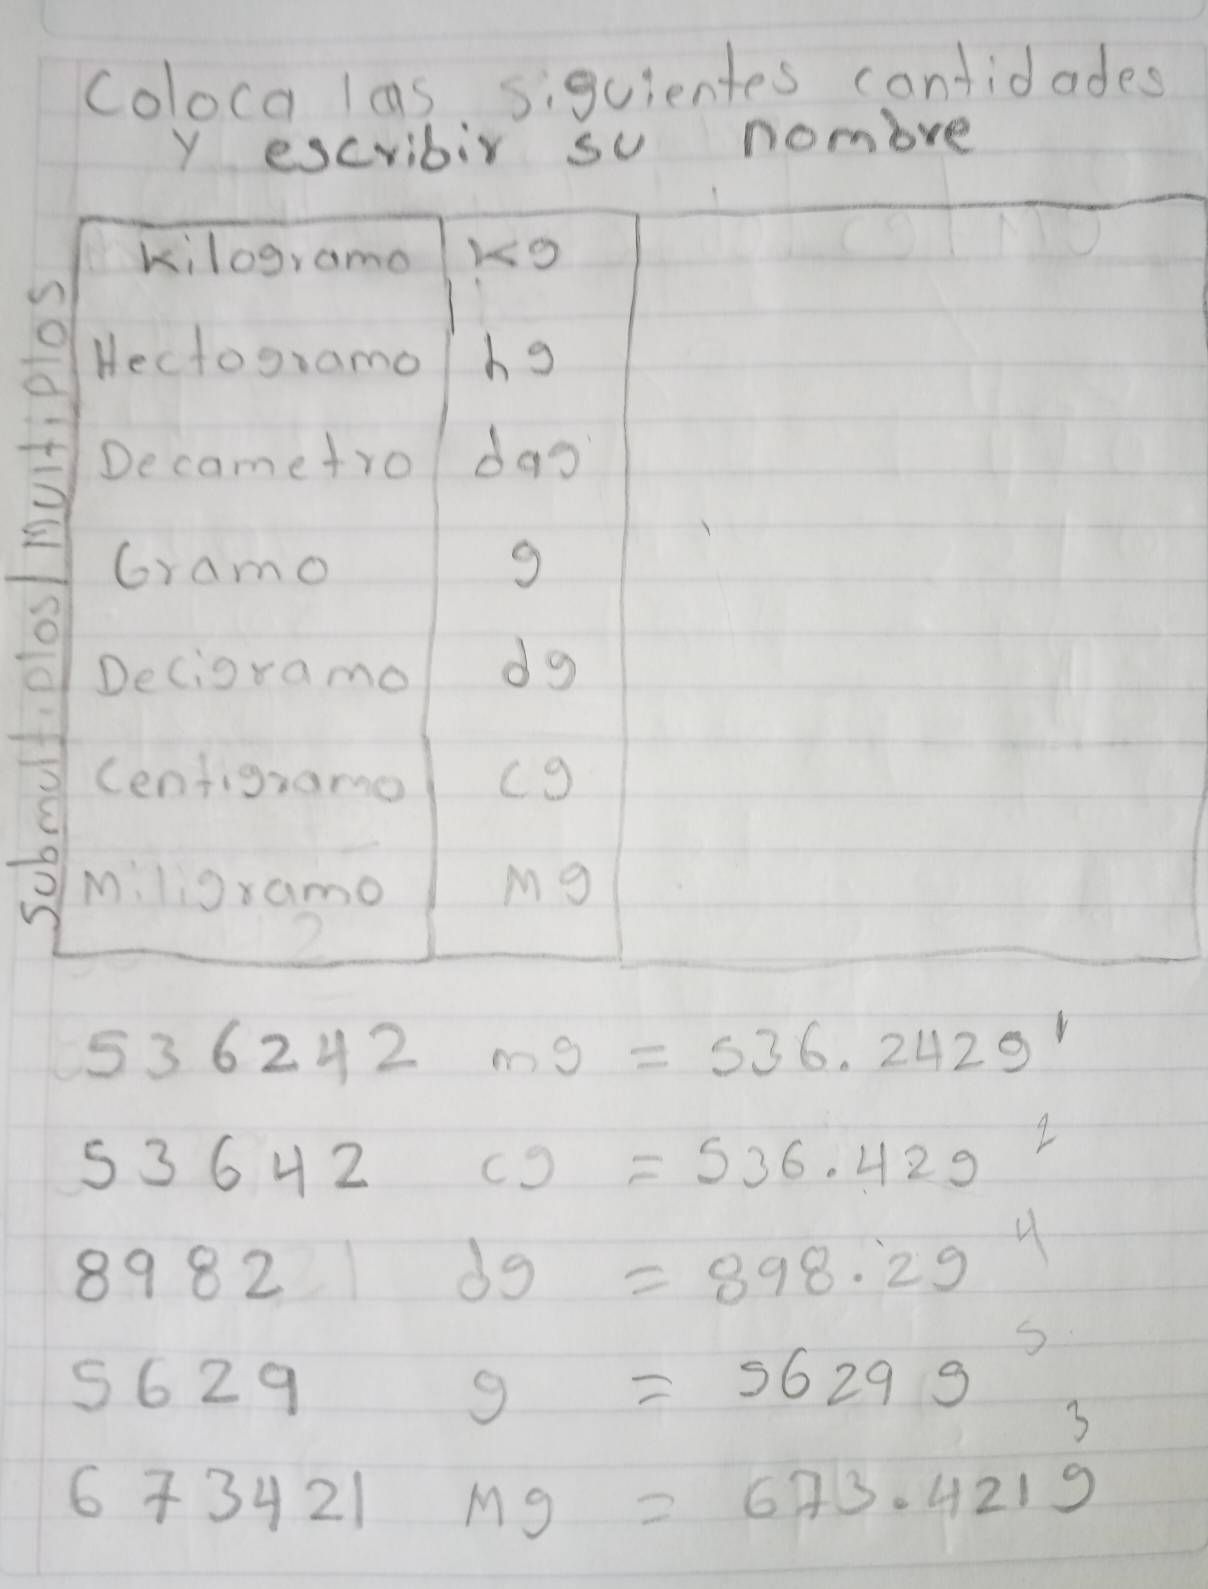 Coloca las siguientes cantidades
y escribir su nombre
Multiplos
Submultiplos
Kilogramo kg
Hectogramo hg
Decametro dag
Gramo g
Decigramo dg
Centigramo cg
Miligramo Mg
536242 mg = 536.242g 1
53642 cg = 536.42g 2
8982 dg = 898.2g 4
5629 g = 5629 g 5
673421 Mg = 673.421g 3